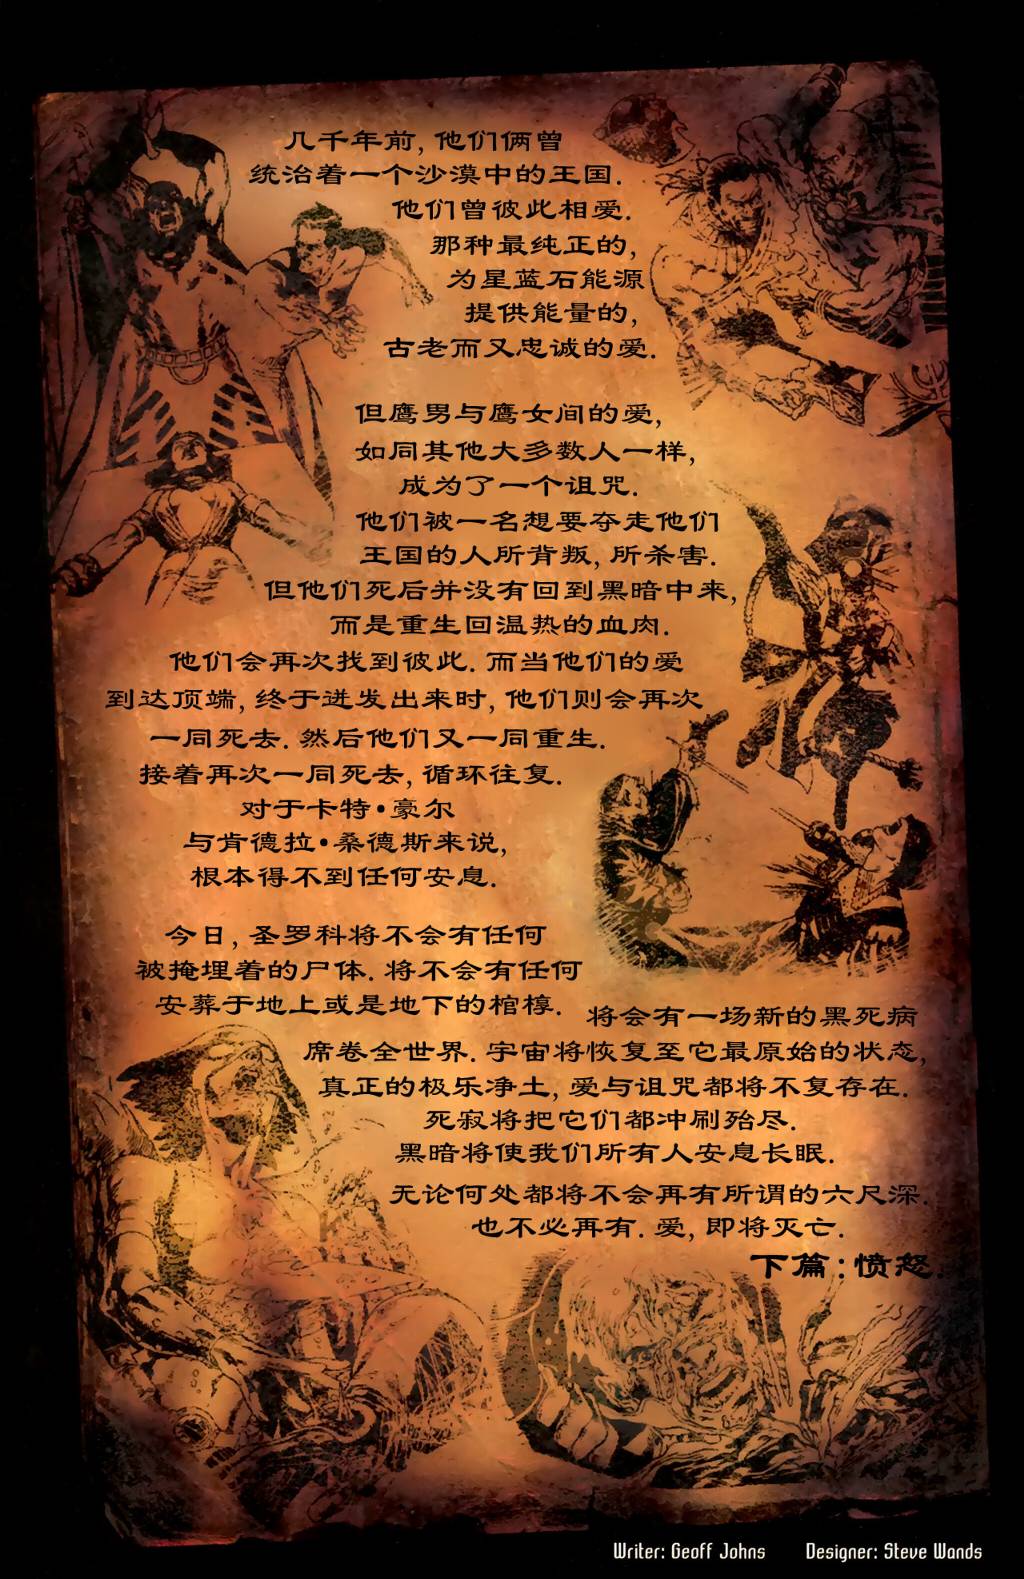 几千年前, 他们俩曾
统治着一个沙漠中的王国.
他们曾彼此相爱.
那种最纯正的,
为星蓝石能源
提供能量的,
古老而又忠诚的爱.
但鹰男与鹰女间的爱,
如同其他大多数人一样,
成为了一个诅咒.
他们被一名想要夺走他们
王国的人所背叛, 所杀害.
但他们死后并没有回到黑暗中来,
而是重生回温热的血肉.
他们会再次找到彼此. 而当他们的爱
到达顶端, 终于迸发出来时, 他们则会再次
一同死去. 然后他们又一同重生.
接着再次一同死去, 循环往复.
对于卡特•豪尔
与肯德拉•桑德斯来说,
根本得不到任何安息.
今日, 圣罗科将不会有任何
被掩埋着的尸体. 将不会有任何
安葬于地上或是地下的棺椁.
将会有一场新的黑死病
席卷全世界. 宇宙将恢复至它最原始的状态,
真正的极乐净土, 爱与诅咒都将不复存在.
死寂将把它们都冲刷殆尽.
黑暗将使我们所有人安息长眠.
无论何处都将不会再有所谓的六尺深.
也不必再有. 爱, 即将灭亡.
下篇:愤怒.
Writer: Geoff Johns
Designer: Steve Wands